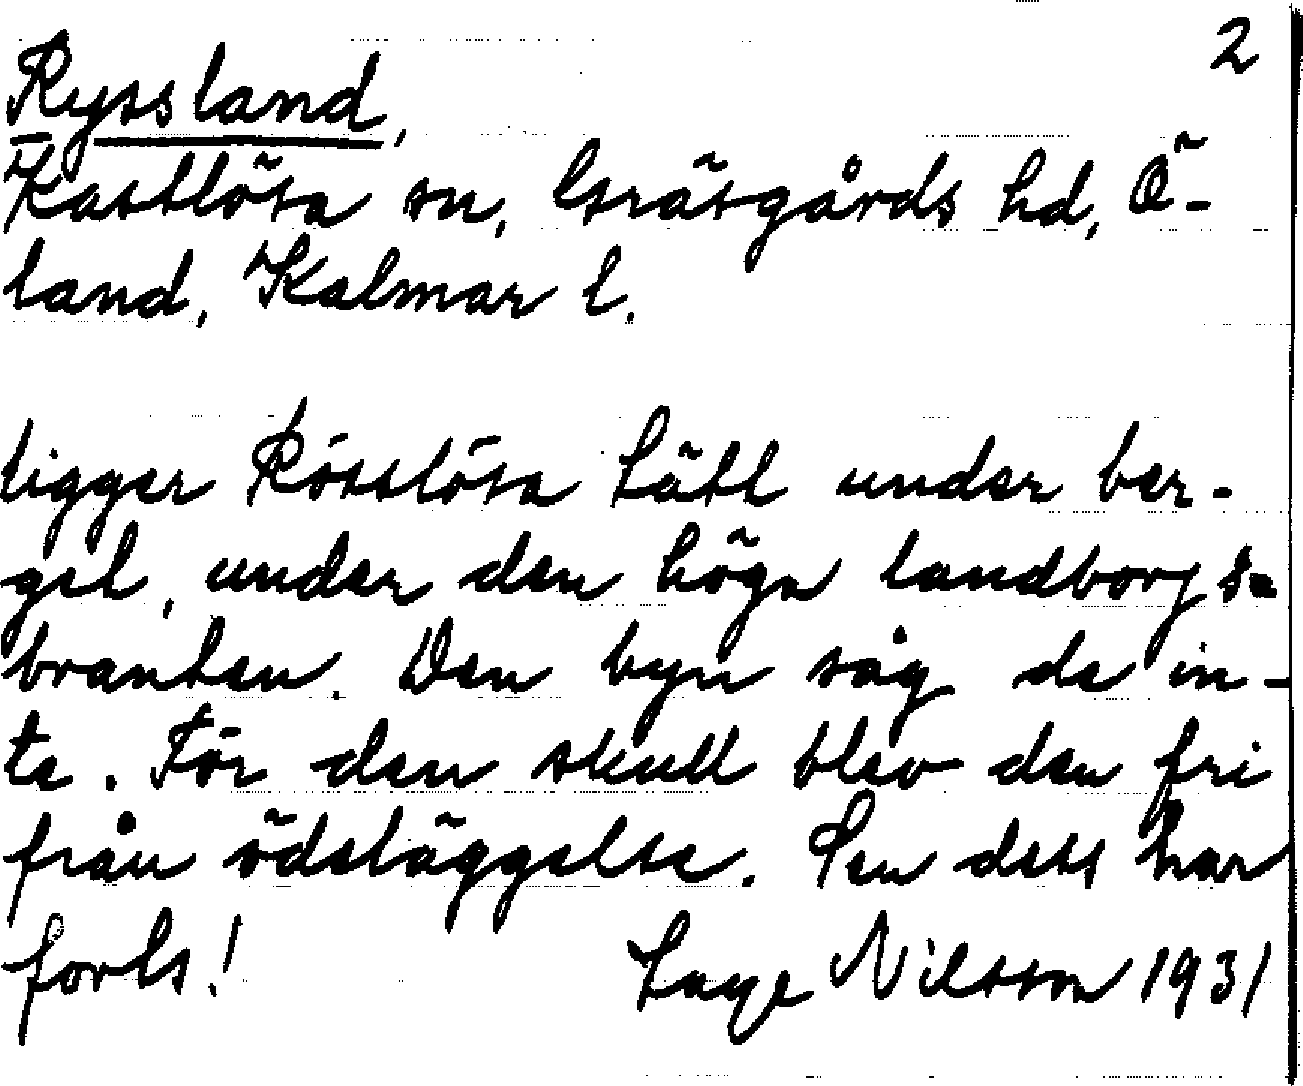 2
Ryssland,
Kastlösa sn, Gräsgårds hd, Ö-
land, Kalmar l.
ligger Rösslösa tätt under ber-
get, under den höga landborgs-
branten. Den byn såg de in-
te. För den skull blev den fri
från ödeläggelse. Sen dess har
forts!
Lage Nilsson 1931